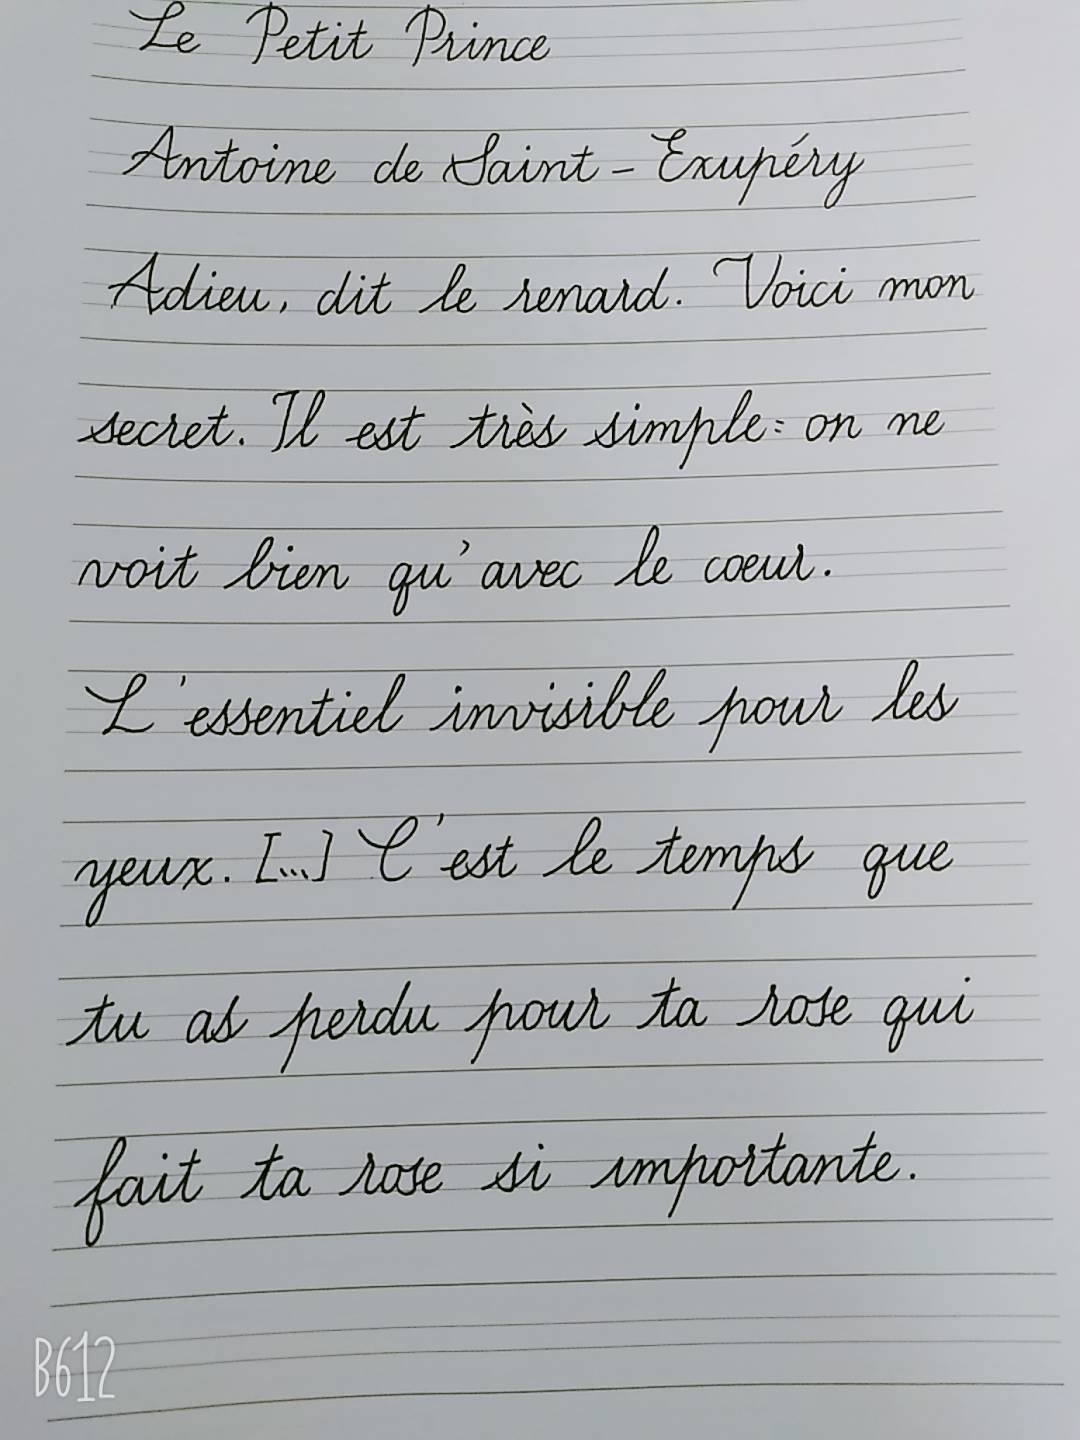 Le Petit Prince
Antoine de Saint-Exupéry
Adieu, dit le renard. Voici mon
secret. Il est très simple: on ne
voit bien qu'avec le coeur.
L'essentiel invisible pour les
yeux. [...] C'est le temps que
tu as perdu pour ta rose qui
fait ta rose si importante.
B612